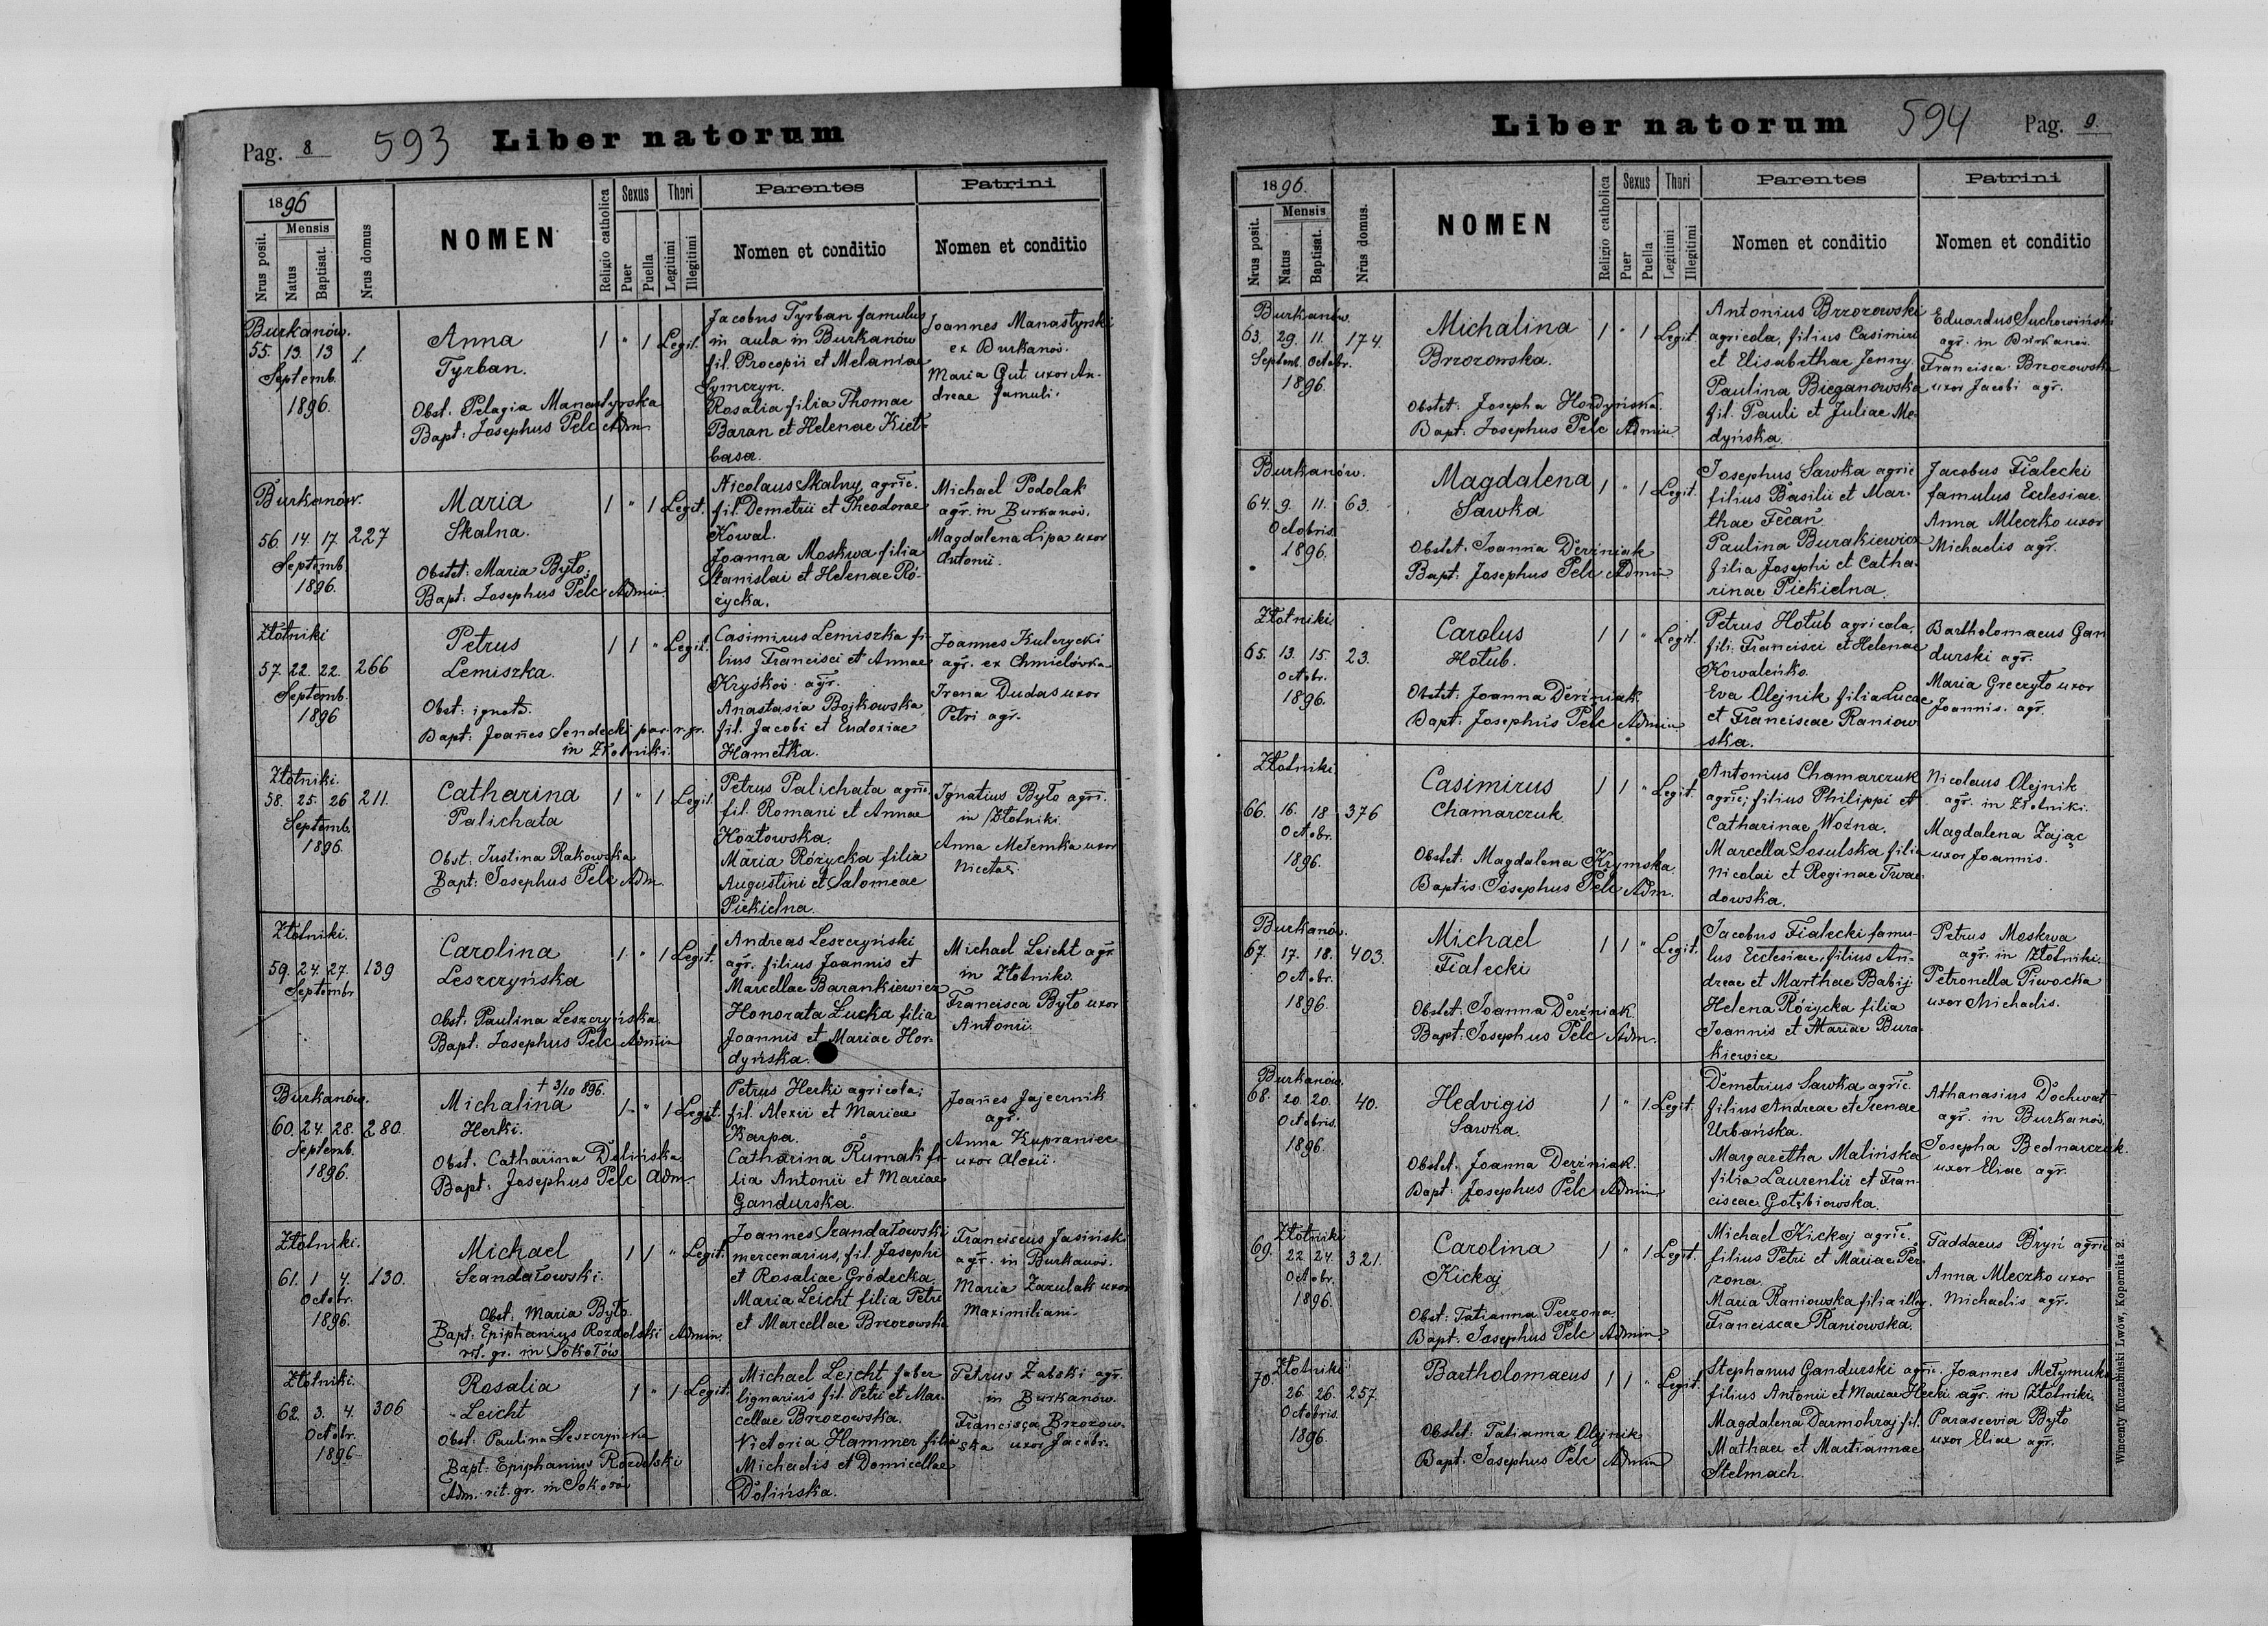 Pag. 8. 593 Liber natorum
1896
Nrus posit.
Mensis
Natus
Baptisat.
Nrus domus
NOMEN
Religio catholica
Sexus
Puer
Puella
Thori
Legitimi
Illegitimi
Parentes
Nomen et conditio
Patrini
Nomen et conditio
Burkanów.
55. 13. 13 1.
Septemb.
1896.
Anna
Tyrban.
Obst. Pelagia Manastyrska
Bapt: Josephus Pelc Adm
1 " 1 Legit.
Jacobus Tyrban famulus
in aula in Burkanów
fil. Procopii et Melaniae
Symczyn.
Rosalia filia Thomae
Baran et Helenae Kieł-
basa.
Joannes Manastyrski
ex Burkanów.
Maria Gut uxor An-
dreae famuli.
Burkanów.
56. 14. 17 227
Septemb
1896.
Maria
Skalna.
Obstet: Maria Byto.
Bapt: Josephus Pelc Admin.
1 " 1 Legit.
Nicolaus Skalny agric.
fil. Demetrii et Theodorae
Kowal.
Joanna Moskwa filia
Stanislai et Helenae Ró-
życka.
Michael Podolak
agr. in Burkanów.
Magdalena Lipa uxor
Antonii.
Złotniki
57. 22. 22. 266
Septemb.
1896
Petrus
Lemiszka.
Obst: ignota.
Bapt: Joannes Sendecki par. r. gr.
in Złotniki.
1 1 " Legit.
Casimirus Lemiszka fi-
lius Francisci et Annae
Kryśków agr.
Anastasia Bojkowska
fil. Jacobi et Eudoxiae
Hametka.
Joannes Kulczycki
agr. ex Chmielówka
Irena Dudas uxor
Petri agr.
Złotniki.
58. 25. 26 211.
Septemb.
1896.
Catharina
Palichata
Obst: Justina Rakowska
Bapt: Josephus Pelc Adm.
1 " 1 Legit.
Petrus Palichata agric.
fil. Romani et Annae
Kozłowska.
Maria Różycka filia
Augustini et Salomeae
Piekielna.
Ignatius Byto agri.
in Złotniki.
Anna Melemka uxor
Nicetae.
Złotniki.
59. 24. 27. 139
Septembr
Carolina
Leszczyńska
Obst: Paulina Leszczyńska.
Bapt: Josephus Pelc Admin
1 " 1 Legit.
Andreas Leszczyński
agr. filius Joannis et
Marcellae Barankiewicz
Honorata Łucka filia
Joannis et Mariae Hor-
dyńska.
Michael Leicht agr.
in Złotniki.
Francisca Byto uxor
Antonii.
Burkanów.
60. 24. 28. 280.
Septemb.
1896.
+ 3/10 896.
Michalina
Herki.
Obst. Catharina Dolińska
Bapt: Josephus Pelc Adm.
1 " 1 Legit.
Petrus Herki agricola;
fil. Alexii et Mariae
Karpa.
Catharina Rumak fi-
lia Antonii et Mariae
Gandurska.
Joannes Jajecznik
agr.
Anna Kupraniec
uxor Alexii.
Złotniki.
61. 1 4. 130.
Octobr.
1896.
Michael
Szandałowski.
Obst: Maria Byto.
Bapt: Epiphanius Rozdolski Admin.
rit. gr. in Sokołów.
1 1 " Legit.
Joannes Szandałowski
mercenarius, fil. Josephi
et Rosaliae Gródecka.
Maria Leicht filia Petri
et Marcellae Brzozowska
Franciscus Jasińsk
agr. in Burkanów.
Maria Zazulak uxor
Maximiliani
Złotniki.
62. 3. 4. 306
Octobr.
1896
Rosalia
Leicht
Obst: Paulina Leszczyńska
Bapt: Epiphanius Rozdolski
Adm. rit. gr. in Sokołów
1 " 1 Legit.
Michael Leicht faber
lignarius fil. Petri et Mar-
cellae Brzozowska.
Victoria Hammer filia
Michaelis et Domicellae
Dolińska.
Petrus Żabski agr.
in Burkanów.
Francisca Brzozow-
ska uxor Jacobi.
Liber natorum 594 Pag. 9.
1896.
Nrus posit.
Mensis
Natus
Baptisat.
Nrus domus.
NOMEN
Religio catholica
Sexus
Puer
Puella
Thori
Legitimi
Illegitimi
Parentes
Nomen et conditio
Patrini
Nomen et conditio
Burkanów.
63. 29. 11. 174.
Septemb. Octobr.
1896.
Michalina
Brzozowska.
Obstet: Josepha Hordyńska.
Bapt: Josephus Pelc Admin.
1 " 1 Legit.
Antonius Brzozowski
agricola, filius Casimiri
et Elisabethae Jenny.
Paulina Bieganowska
fil. Pauli et Juliae Me-
dyńska.
Eduardus Suchowiński
agr. in Burkanów.
Francisca Brzozowska
uxor Jacobi agr.
Burkanów.
64. 9. 11. 63.
Octobris.
1896.
Magdalena
Sawka
Obstet. Joanna Derźniak
Bapt: Josephus Pelc Admin
1 " 1 Legit.
Josephus Sawka agric
filius Basilii et Mar-
thae Fecan
Paulina Burakiewicz
filia Josephi et Catha-
rinae Piekielna.
Jacobus Fialecki
famulus Ecclesiae.
Anna Mleczko uxor
Michaelis agr.
Złotniki
65. 13. 15. 23.
Octobr.
1896.
Carolus
Hołub.
Obstet: Joanna Derźniak.
Bapt: Josephus Pelc Admin
1 1 " Legit.
Petrus Hołub agricola,
fili. Francisci et Helenae
Kowaleńko.
Eva Olejnik filia Lucae
et Franciscae Raniow
ska.
Bartholomaeus Gan
durski agr.
Maria Greczyło uxor
Joannis. agr.
Złotniki
66. 16. 18 376
Octobr.
1896.
Casimirus
Chamarczuk.
Obstet: Magdalena Krymska.
Baptis: Josephus Pelc Adm.
1 1 " Legit.
Antonius Chamarczuk
agric; filius Philippi et
Catharinae Woźna.
Marcella Sosulska filia
Nicolai et Reginae Twar-
dowska.
Nicolaus Olejnik
agr. in Złotniki.
Magdalena Zając
uxor Joannis.
Burkanów.
67. 17. 18. 403.
Octobr.
1896.
Michael
Fialecki
Obstet. Joanna Derźniak.
Bapt: Josephus Pelc Adm.
1 1 " Legit.
Jacobus Fialecki famu-
lus Ecclesiae, filius An-
dreae et Marthae Babij
Helena Różycka filia
Joannis et Mariae Bura-
kiewicz
Petrus Moskwa
agr. in Złotniki.
Petronella Piwocka
uxor Michaelis.
Burkanów.
68. 20. 20. 40.
Octobris.
1896.
Hedvigis
Sawka.
Obstet. Joanna Derźniak.
Bapt: Josephus Pelc Admin
1 " 1. Legit.
Demetrius Sawka agric.
filius Andreae et Irenae
Urbańska.
Margaretha Malińska
filia Laurentii et Fran-
ciscae Gołębiowska.
Athanasius Dochwat
agr. in Burkanów.
Josepha Bednarczuk.
uxor Eliae agr.
Złotniki
69. 22. 24. 321.
Octobr.
1896.
Carolina
Kickaj
Obst: Tatianna Perzona
Bapt: Josephus Pelc Admin
1 " 1. Legit.
Michael Kickaj agric.
filius Petri et Mariae Per
zona.
Maria Raniowska filia illeg.
Franciscae Raniowska.
Taddaeus Bryń agric
Anna Mleczko uxor
Michaelis agr.
Złotniki
70. 26. 26. 257.
Octobris.
1896.
Bartholomaeus
Obstet: Tatianna Olejnik
Bapt. Josephus Pelc Admin
1 1 " Legit.
Stephanus Gandurski agric.
filius Antonii et Mariae Herki
Magdalena Darmohraj fil.
Mathaei et Martiannae
Stelmach.
Joannes Metymuka
agr. in Złotniki.
Parascevia Byto
uxor Eliae agr.
Wincenty Kuczabiński Lwów, Kopernika 2.